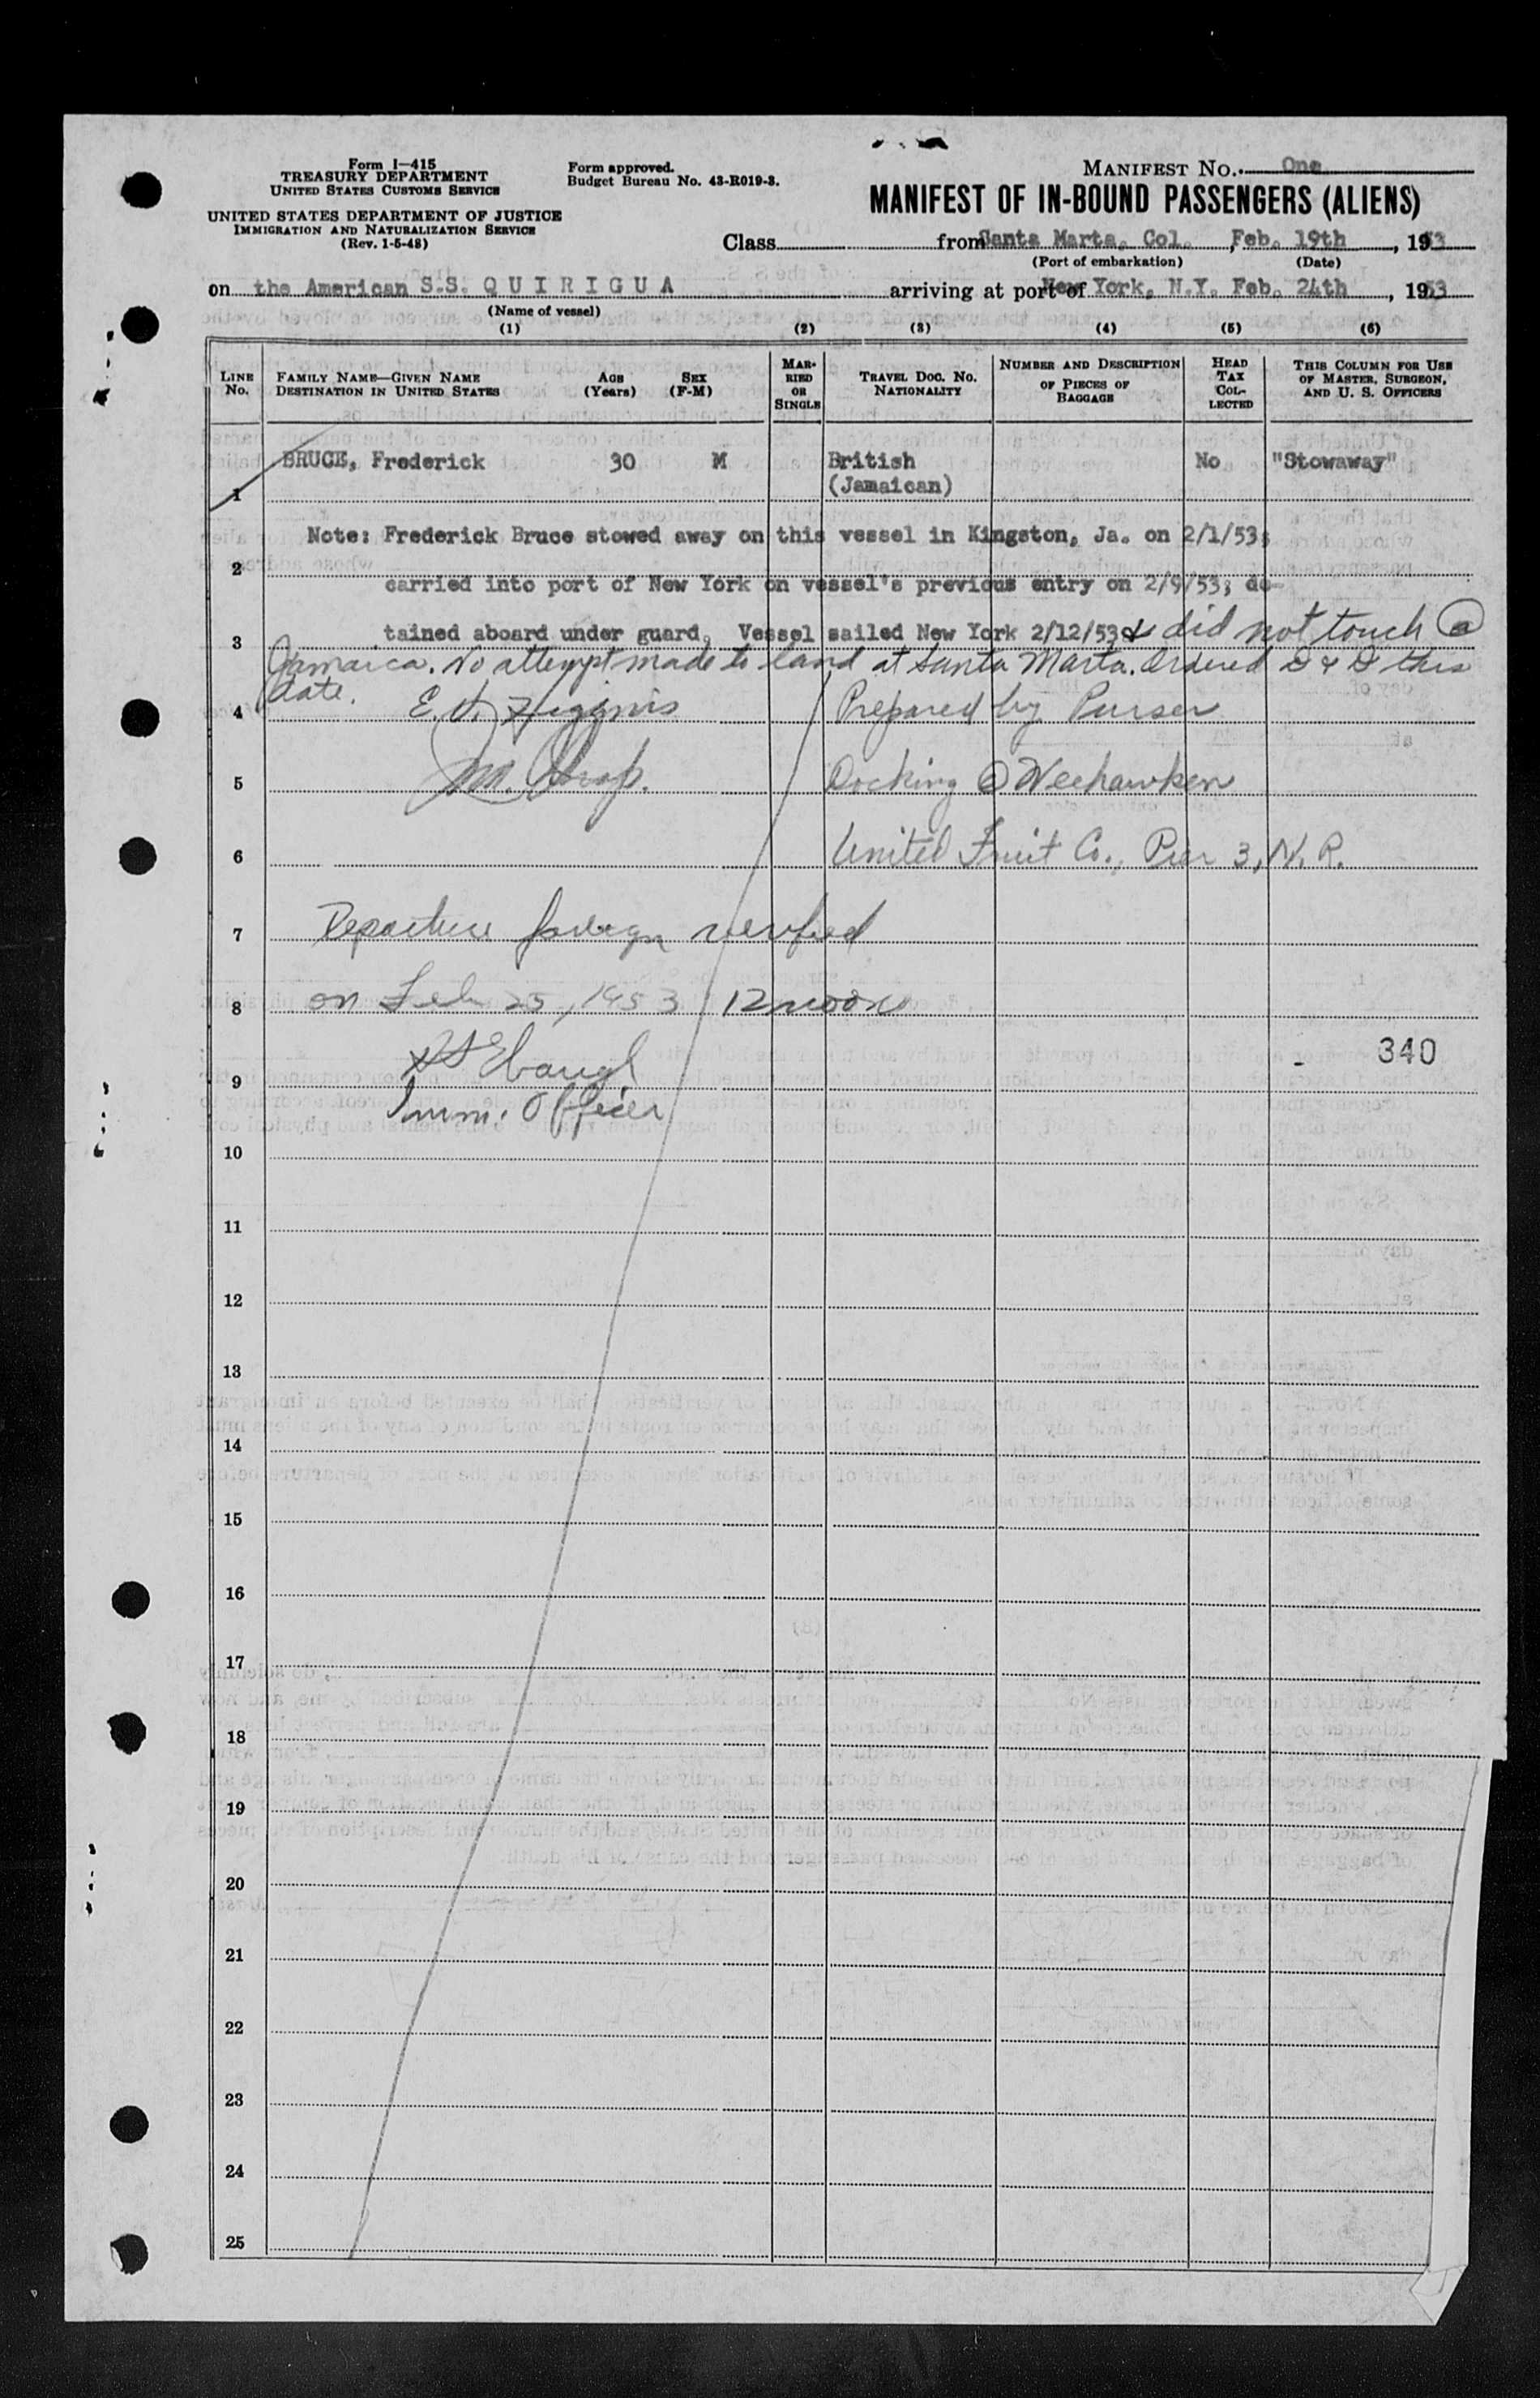 Form I-415
TREASURY DEPARTMENT
UNITED STATES CUSTOMS SERVICE
UNITED STATES DEPARTMENT OF JUSTICE
IMMIGRATION AND NATURALIZATION SERVICE
(Rev. 1-5-48)
Form approved.
Budget Bureau No. 43-R019-3.
MANIFEST NO. One
MANIFEST OF IN-BOUND PASSENGERS (ALIENS)
Class from Santa Marta, Col. , Feb. 19th , 1953
(Port of embarkation) (Date)
on the American S.S. Q U I R I G U A arriving at port of New York, N.Y. Feb. 24th , 1953
(Name of vessel)
(1) (2) (3) (4) (5) (6)
LINE NO.
FAMILY NAME—GIVEN NAME
DESTINATION IN UNITED STATES
AGE (Years)
SEX (F-M)
MARRIED OR SINGLE
TRAVEL DOC. NO.
NATIONALITY
NUMBER AND DESCRIPTION
OF PIECES OF
BAGGAGE
HEAD TAX COLLECTED
THIS COLUMN FOR USE
OF MASTER, SURGEON,
AND U. S. OFFICERS
BRUCE, Frederick 30 M British No "Stowaway"
1 (Jamaican)
Note: Frederick Bruce stowed away on this vessel in Kingston, Ja. on 2/1/53;
2
carried into port of New York on vessel's previous entry on 2/9/53; de-
3 tained aboard under guard. Vessel sailed New York 2/12/53 & did not touch @
Jamaica. No attempt made to land at Santa Marta. Ordered D & D this
date.
4 E. V. Higgins Prepared by Purser
5 Docking @ Weehawken
6 United Fruit Co., Pier 3, N. R.
7 Departure foreign verified
8 on Feb 25, 1953 12 noon
340
9
Imm. Officer
10
11
12
13
14
15
16
17
18
19
20
21
22
23
24
25